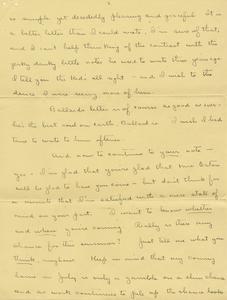 so simple yet decidedly pleasing and graceful. It is
a better letter than I could write, I'm sure of that,
and I can't help thinking of the contrast with the
jerky dinky little notes he used to write three years ago.
I tell you the kid's all right - and I wish to the
deuce I were seeing more of him.
Ballard's letter is of course as good as ever-
he's the best ever on earth Ballard is. I wish I had
time to write to him oftener.
And now to continue to your note -
yes - I'm glad that you're glad that Mrs.
will be glad to have you come - but don't think for
a minute that I'm satisfied with a mere state of
mind on your part. I want to know whether
and when you're coming. Really is there any
chance for this summer? Just tell me what you
think, anyhow. Keep in mind that my coming
home in July is only a gamble on a slim chance
and as work continues to pile up the chance looks